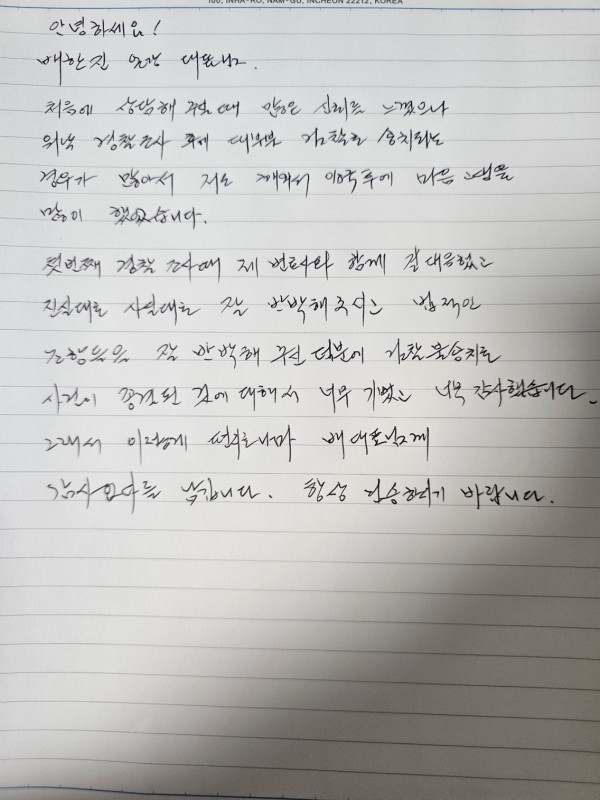 100, INHA-RO, NAM-GU, INCHEON 22212, KOREA
안녕하세요!
배한진 대표님.
처음에 상담해 주실때 많은 신뢰를 느꼈으나
워낙 경찰조사 후에 대부분 검찰로 송치되는
경우가 많아서 저도 이후에 마음고생을
많이 했었습니다.
첫번째 경찰 조사때 제 변호사와 함께 잘 대응했고
진실대로 사실대로 잘 반박해주시는 법적인
잘 반박해 주신 덕분에 검찰 불송치로
사건이 종결된 것에 대해서 너무 기뻤고 너무 감사했습니다.
그래서 이렇게 편지로나마 배대표님께
감사인사를 남깁니다. 항상 건승하시기 바랍니다.